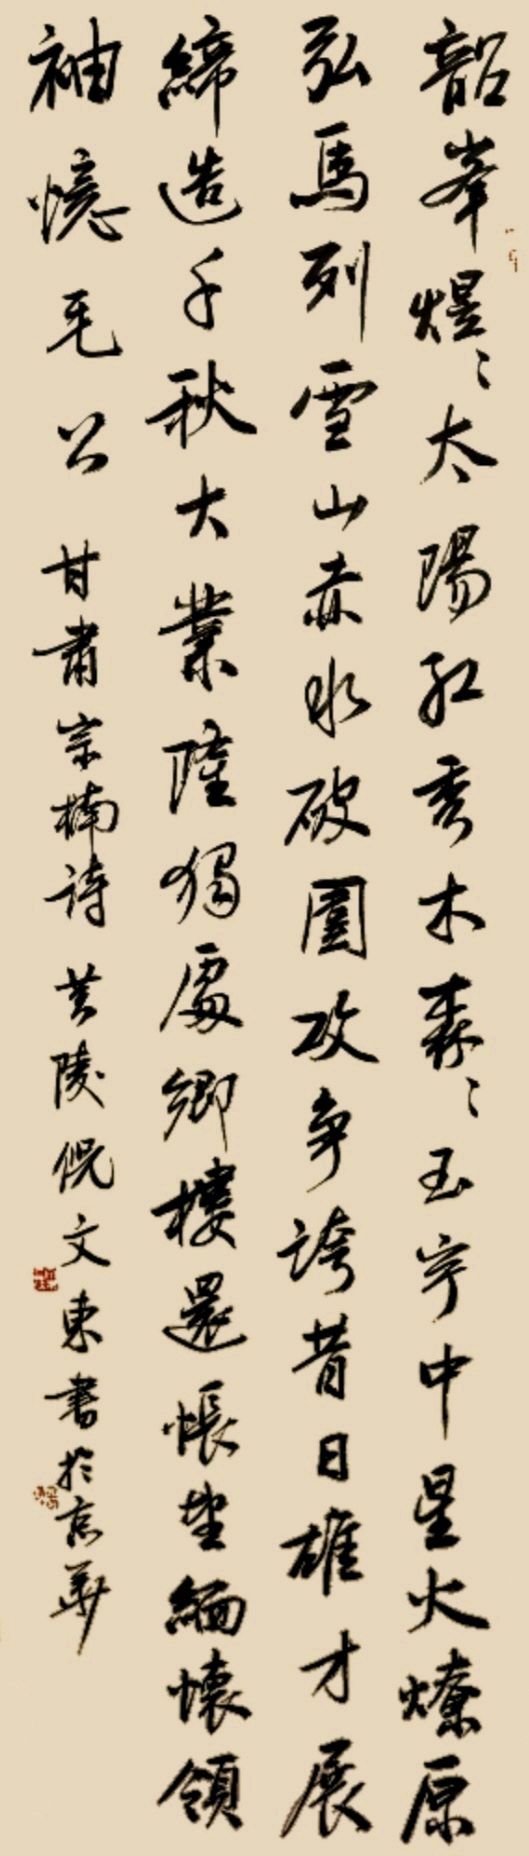 韶峯煜〻太陽紅秀木森〻玉宇中星火燎原
弘馬列雪山赤水破圍攻争誇昔日雄才展
締造千秋大業隆獨處鄉樓還悵望緬懷領
袖憶毛公 甘肅宗楠詩 黄陵倪文東書於京華